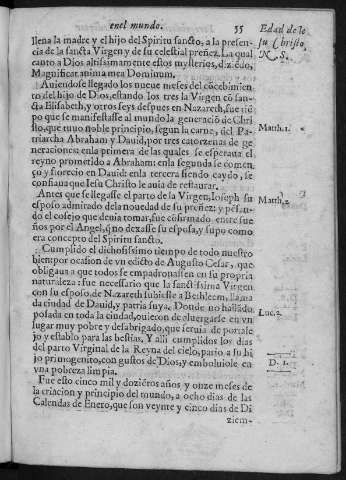 en el mundo. 55
Edad de Je
su Christo
N. S.
llena la madre y el hijo del Spiritu sancto, a la presen-
cia de la sancta Virgen y de su celestial preñez. La qual
canto a Dios altissimamente estos mysterios, diziẽdo,
Magnificat anima mea Dominum.
Auiendose llegado los nueue meses del cõcebimien-
to del hijo de Dios, estando los tres la Virgen cõ san-
cta Elisabeth, y otros seys despues en Nazareth, fue tiẽ
po que se manifestasse al mundo la generaciõ de Chri
sto, que tuuo noble principio, segun la carne, del Pa-
Matth. 1.
triarcha Abraham y Dauid, por tres catorzenas de ge
neraciones: en la primera de las quales se esperaua el
reyno prometido a Abraham: en la segunda se comen
ço y florecio en Dauid: en la tercera siendo caydo, se
confiaua que Iesu Christo le auia de restaurar.
Antes que se llegasse el parto de la Virgen, Ioseph su
Matth. 2.
esposo admirado de la nouedad de su preñez: y pẽsan-
do el cõsejo que deuia tomar, fue cõfirmado entre sue
ños por el Angel, q̃ no dexasse su esposa, y supo como
era concepto del Spiritu sancto.
Cumplido el dichosissimo tiempo de todo nuestro
bien por ocasion de vn edicto de Augusto Cesar, que
obligaua a que todos se empadronassen en su propria
naturaleza: fue necessario que la sanctissima Virgen
con su esposo, de Nazareth subiesse a Bethleem, llama
da ciudad de Dauid, y patria suya. Donde no hallãdo
posada en toda la ciudad, ouieron de aluergarse en vn
Luc. 2.
lugar muy pobre y desabrigado, que seruia de portale
jo y establo para las bestias. Y alli cumplidos los dias
del parto Virginal de la Reyna del cielo, pario a su hi
jo primogenito, con gustos de Dios, y emboluiole en
D. 1.
vna pobreza limpia.
Fue esto cinco mil y doziẽtos años y onze meses de
la criacion y principio del mundo, a ocho dias de las
Calendas de Enero, que son veynte y cinco dias de Di
ziem-